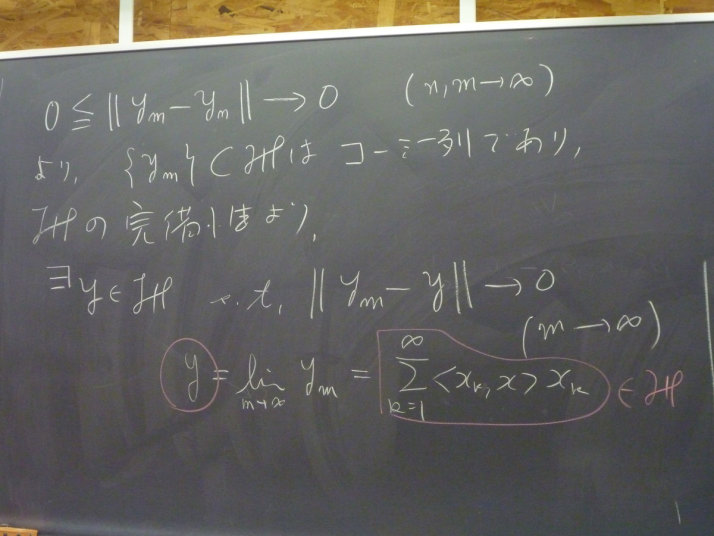 0 ≦ ‖ y_m − y_n ‖ → 0 (n, m → ∞)
より, {y_m} ⊂ ℋ は コーシー列であり,
ℋ の 完備性より,
∃y ∈ ℋ s.t. ‖ y_m − y ‖ → 0
(m → ∞)
y = lim_{m→∞} y_m = ∑_{k=1}^{∞} <x_k, x> x_k ∈ ℋ